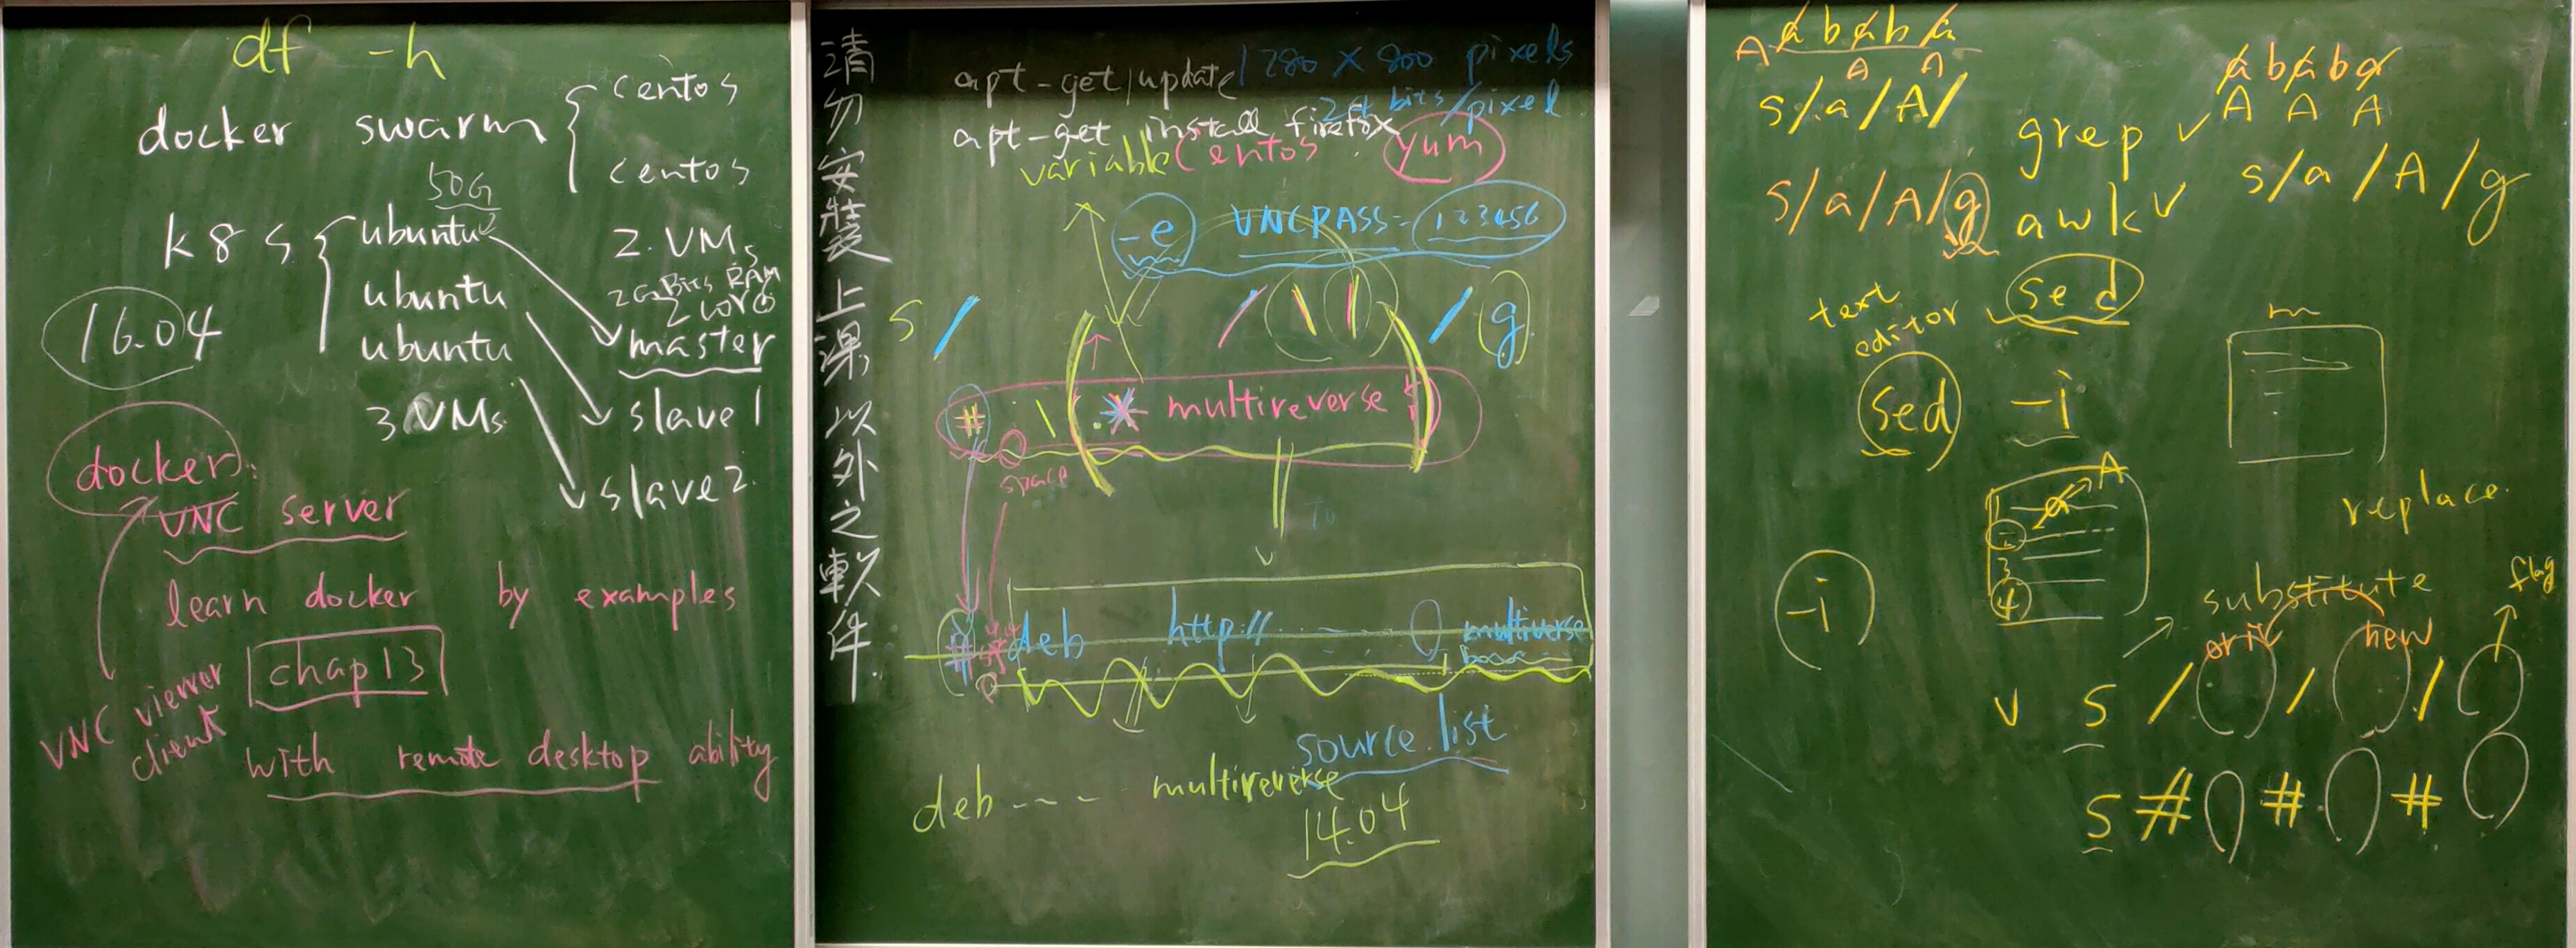 df -h
docker swarm { centos
centos
50G
k8s { ubuntu
2 VMs
ubuntu
2G Bits RAM
2 core
16.04
ubuntu
master
3 VMs
slave1
docker:
slave2
VNC server
learn docker by examples
chap13
VNC viewer
client
with remote desktop ability
請勿安裝上課以外之軟件
apt-get update
1280 x 800 pixels
24 bits/pixel
apt-get install firefox
variable
Centos
yum
-e VNCPASS=123456
s / / \ | / g
# \( .* multireverse $ \)
space
To
# deb http:// multiverse
source.list
deb ---- multireverse
14.04
ababa
A A A
s/a/A/
ababa
A A A
grep ✓
s/a/A/g
s/a/A/g
awk ✓
text
editor
sed
m
sed -i
a → A
2
3
4
replace
-i
substitute
flag
ori
new
v s / / /
s # # #